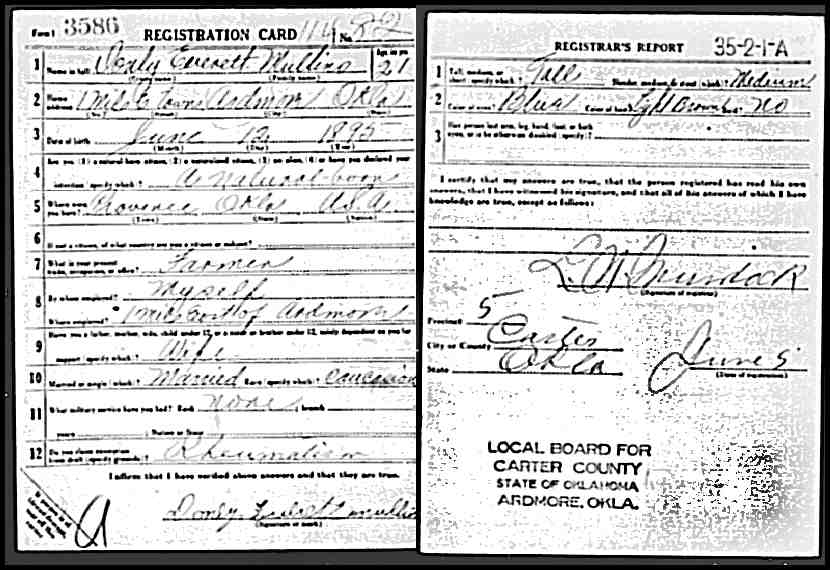 Form 1 3586 REGISTRATION CARD No. 82
1 Name in full Everett Mullins Age, in yrs. 21
(Given name) (Family name)
2 Home address 1 Mile E Ardmore Okla
(No.) (Street) (City) (State)
3 Date of birth June 12 1895
(Month) (Day) (Year)
4 Are you (1) a natural-born citizen, (2) a naturalized citizen, (3) an alien, (4) or have you declared your
intention (specify which)? a Natural born
5 Where were you born? Provence Okla U.S.A.
(Town) (State) (Nation)
6 If not a citizen, of what country are you a citizen or subject?
7 What is your present trade, occupation, or office? Farmer
8 By whom employed? Myself
Where employed? 1 mile north of Ardmore
9 Have you a father, mother, wife, child under 12, or a sister or brother under 12, solely dependent on you for
support (specify which)? Wife
10 Married or single (which)? Married Race (specify which)? Caucasian
11 What military service have you had? Rank none branch
years Nation or State
12 Do you claim exemption from draft (specify grounds)? Rheumatism
I affirm that I have verified above answers and that they are true.
(Signature or mark)
REGISTRAR'S REPORT 35-2-1-A
1 Tall, medium, or short (specify which)? Tall Slender, medium, or stout (which)? Medium
2 Color of eyes? Blue Color of hair? Light Brown Bald? No
3 Has person lost arm, leg, hand, foot, or both
eyes, or is he otherwise disabled (specify)?
I certify that my answers are true, that the person registered has read his own
answers, that I have witnessed his signature, and that all of his answers of which I have
knowledge are true, except as follows:
Murdock
(Signature of registrar)
Precinct 5
City or County Carter
State Okla June 5
(Date of registration)
LOCAL BOARD FOR
CARTER COUNTY,
STATE OF OKLAHOMA
ARDMORE, OKLA.